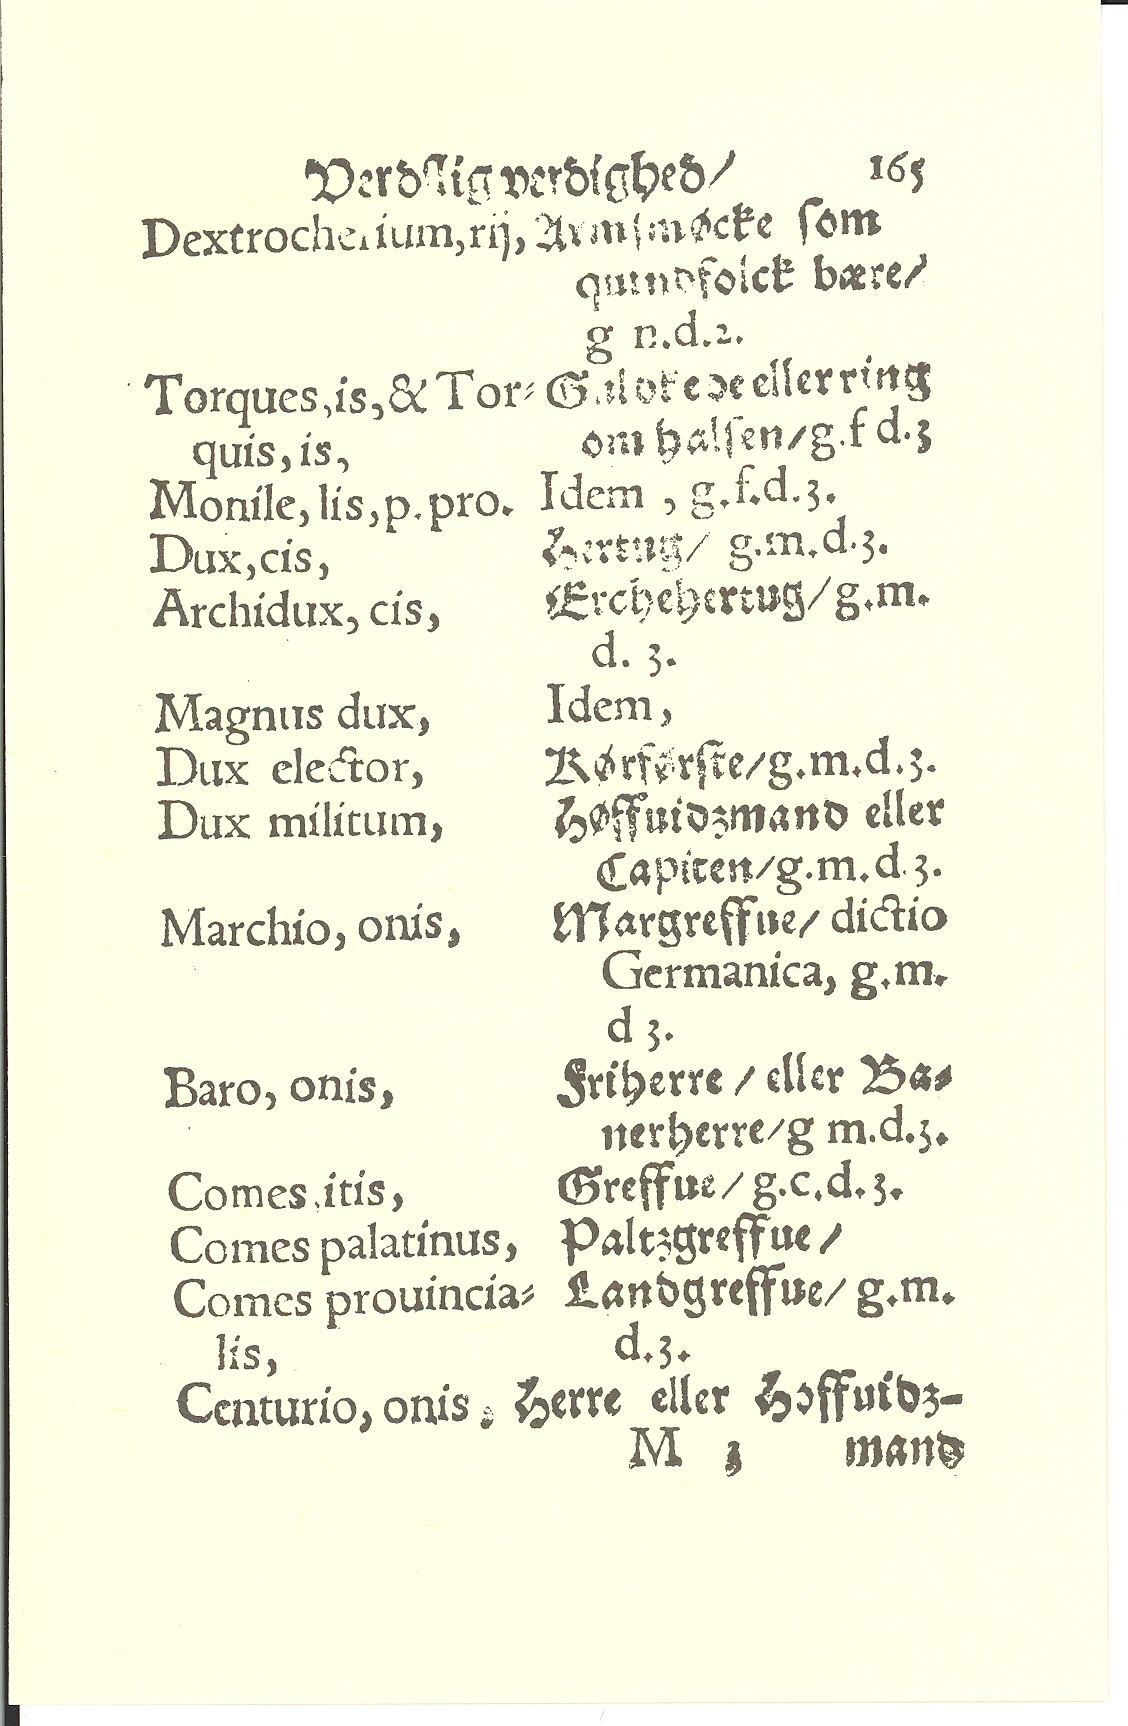 Verdslig verdighed/ 165
Dextrocherium,rij, Armsmøcke som
quindfolck bære/
g n.d.2.
Torques,is,& Tor⸗ Guldkede eller ring
quis,is, om halsen/g.f d.3
Monile,lis,p.pro. Idem , g.f.d.3.
Dux,cis, Hertug/ g.m.d.3.
Archidux, cis, Erchehertug/g.m.
d. 3.
Magnus dux, Idem,
Dux elector, Kørførste/g.m.d.3.
Dux militum, Høffuidzmand eller
Capiten/g.m.d.3.
Marchio, onis, Margreffue/ dictio
Germanica, g.m.
d 3.
Baro, onis, Friherre / eller Ba⸗
nerherre/g m.d.3.
Comes,itis, Greffue/ g.c.d.3.
Comes palatinus, Paltzgreffue/
Comes prouincia⸗ Landgreffue/ g.m.
lis, d.3.
Centurio, onis, Herre eller Høffuidz-
M 3 mand